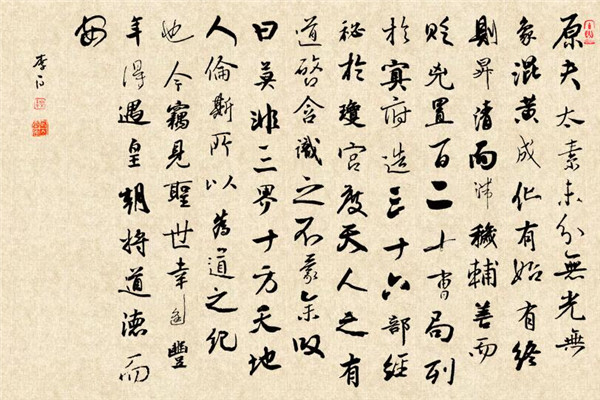 原夫太素未分無光無
象混黄成化有始有終
則昇清而沛穢輔善而
貶兇置百二十曹局列
於冥府造三十六部經
秘於瓊宮度天人之有
道啓含識之不
曰莫非三界十方天地
人倫斯所以為道之紀
也今竊見聖世幸逢豐
年得遇皇朝將道德而
李